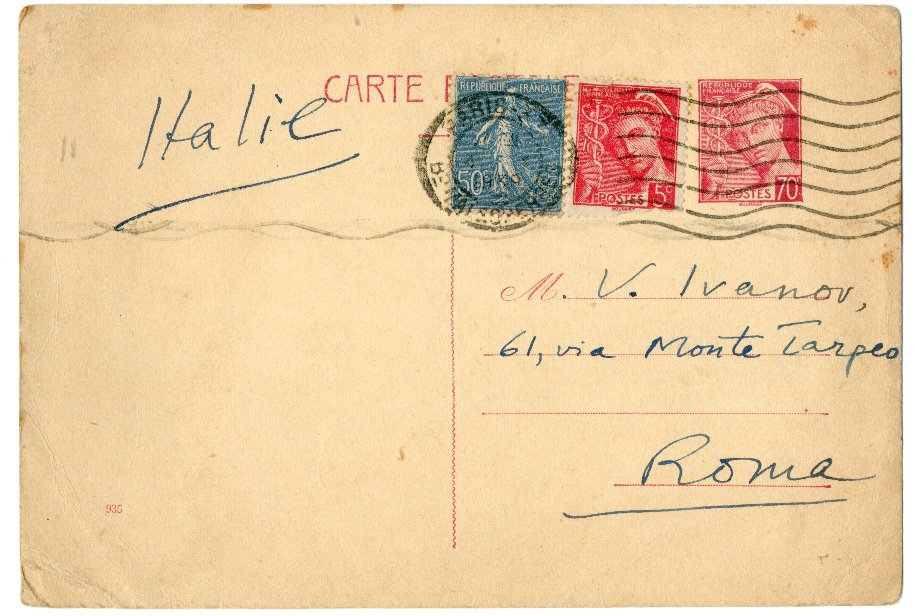 CARTE
Italie
REPUBLIQUE FRANÇAISE
50
FRANÇAISE
POSTES 5c
REPUBLIQUE
FRANÇAISE
POSTES 70c
M. V. Ivanov,
61, via Monte Tarpeo
Roma
935